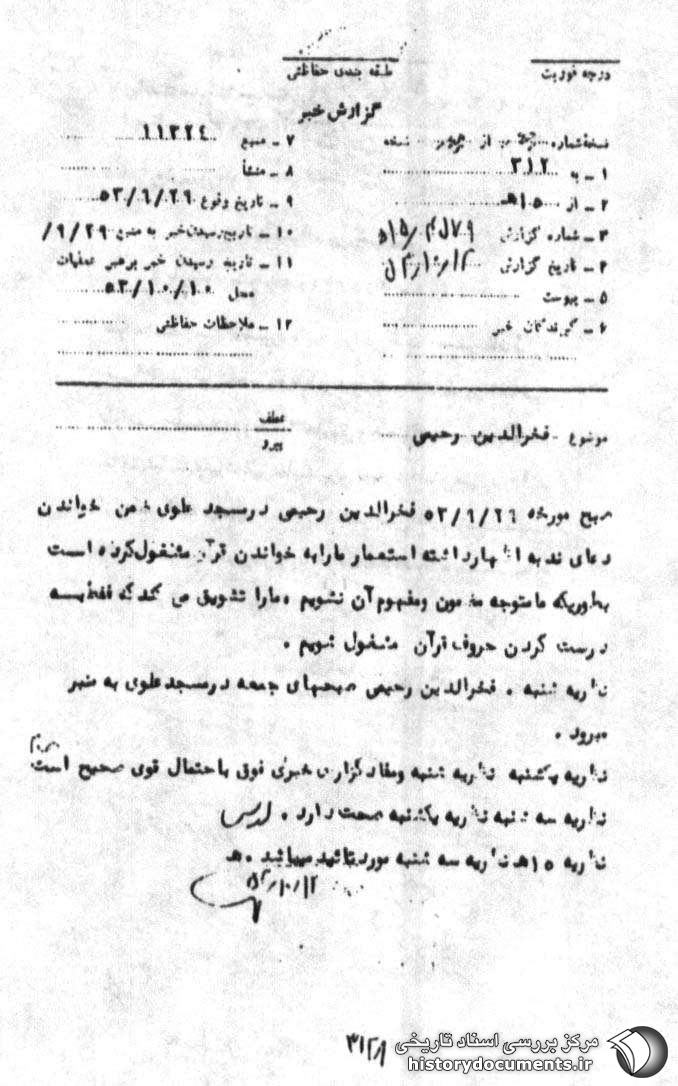 درجه فوریت
طبقه بندی حفاظتی
گزارش خبر
نسخه شماره از نسخه
۱ - به ۳۱۲
۲ - از ۱۵ هـ
۳ - شماره گزارش
۴ - تاریخ گزارش
۵ - پیوست
۶ - گیرندگان خبر
۷ - منبع ۱۱۳۲۴
۸ - منشأ
۹ - تاریخ وقوع ۵۳/۹/۲۹
۱۰ - تاریخ رسیدن خبر به منبع ۲۹/۹/
۱۱ - تاریخ رسیدن خبر برهبر عملیات
محل ۵۳/۱۰/۱۰
۱۲ - ملاحظات حفاظتی
موضوع فخرالدین رحیمی
عطف
پیرو
صبح مورخه ۵۳/۹/۲۹ فخرالدین رحیمی در مسجد علوی ضمن خواندن
دعای ندبه اظهار داشته استعمار ما را به خواندن قرآن مشغول کرده است
بطوریکه ما متوجه مضمون و مفهوم آن نشویم ، ما را تشویق می کند که فقط به
درست کردن حروف قرآن مشغول شویم .
نظریه شنبه . فخرالدین رحیمی صبحهای جمعه در مسجد علوی به منبر
میرود .
نظریه یکشنبه نظریه شنبه و مفاد گزارش خبری فوق باحتمال قوی صحیح است
نظریه سه شنبه نظریه یکشنبه صحت دارد .
نظریه ۱۵ هـ نظریه سه شنبه مورد تائید میباشد . هـ
۵۳/۱۰/۱۲
مرکز بررسی اسناد تاریخی
historydocuments.ir